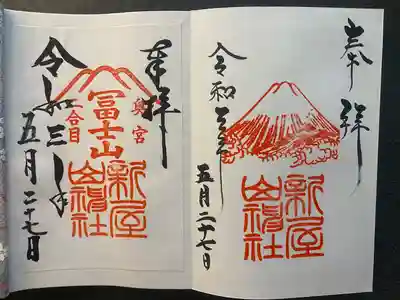 奉拝
五月二十七日
令和三年
新屋山神社
奉拝
奥宮
冨士山
二合目
新屋山神社
令和三年
五月二十七日